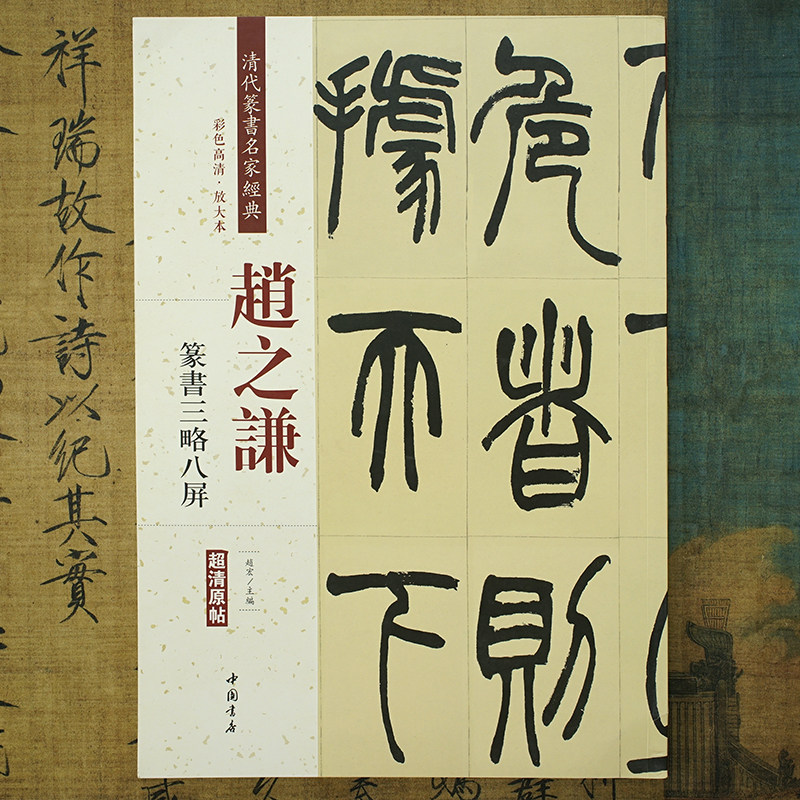 清代篆書名家經典
彩色高清·放大本
趙之謙
篆書三略八屏
趙宏/主編
超清原帖
中国書店
危者則
下
祥瑞故作詩以紀其實